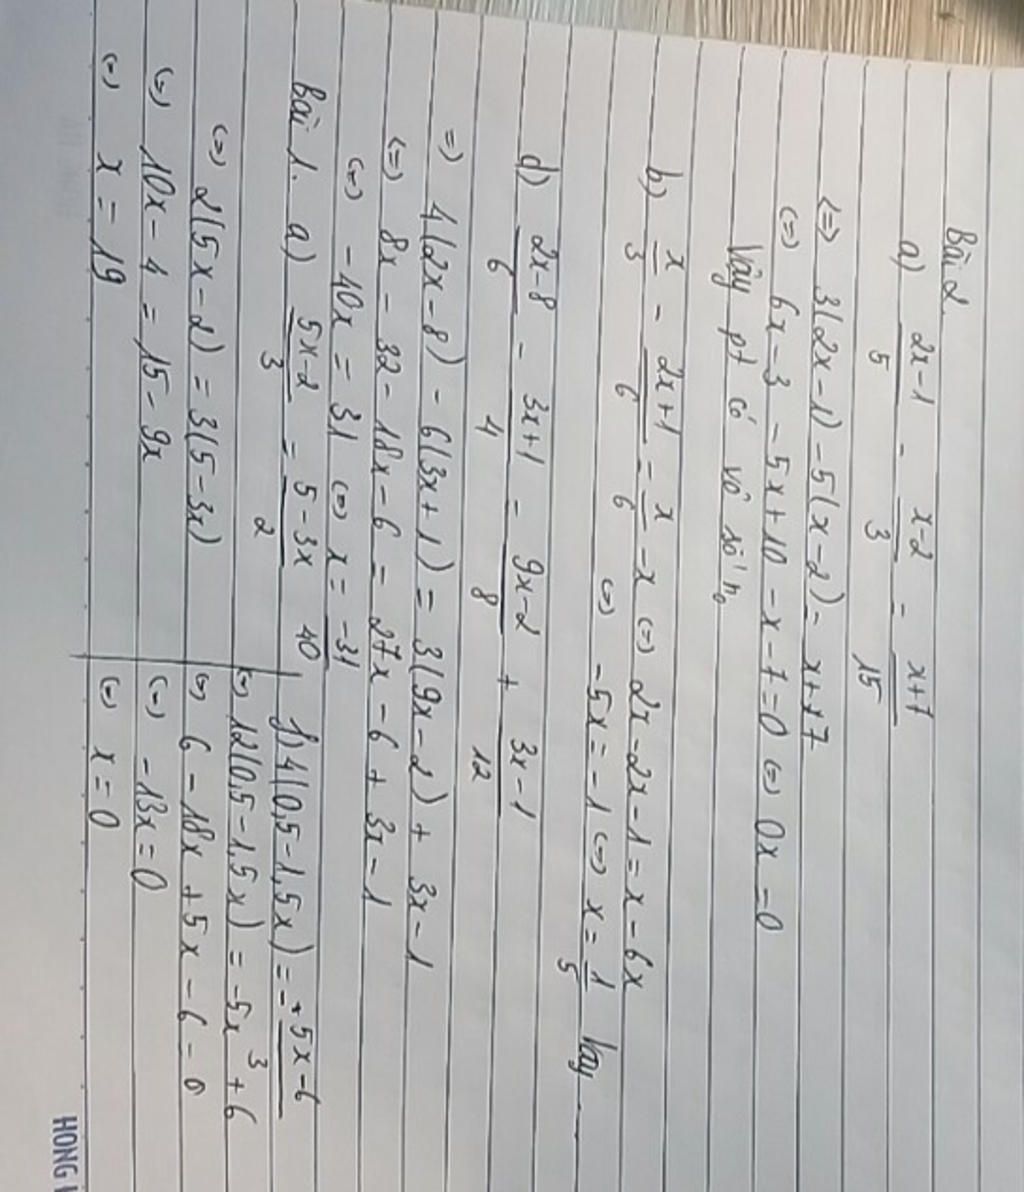 Bài 2.
a) \frac{2x-1}{5} - \frac{x-2}{3} = \frac{x+7}{15}
<=> 3(2x-1) - 5(x-2) = x+7
(=) 6x-3 - 5x+10 - x-7=0 (=) 0x=0
Vậy pt có vô số n0
b) \frac{x}{3} - \frac{2x+1}{6} = \frac{x}{6} - x (=) 2x-2x-1 = x-6x
(=) -5x = -1 (=) x = \frac{1}{5} Vậy ...
d) \frac{2x-8}{6} - \frac{3x+1}{4} = \frac{9x-2}{8} + \frac{3x-1}{12}
=) 4(2x-8) - 6(3x+1) = 3(9x-2) + 3x-1
<=) 8x - 32 - 18x-6 = 27x-6 + 3x-1
(=) -40x = 31 (=) x = \frac{-31}{40}
Bài 1. a) \frac{5x-2}{3} = \frac{5-3x}{2}
(=) 2(5x-2) = 3(5-3x)
(=) 10x-4 = 15-9x
(=) x = 19
f) 4(0,5-1,5x) = -\frac{5x-6}{3}
(=) 12(0,5-1,5x) = -5x+6
(=) 6-18x+5x-6=0
(=) -13x=0
(=) x=0
HONG